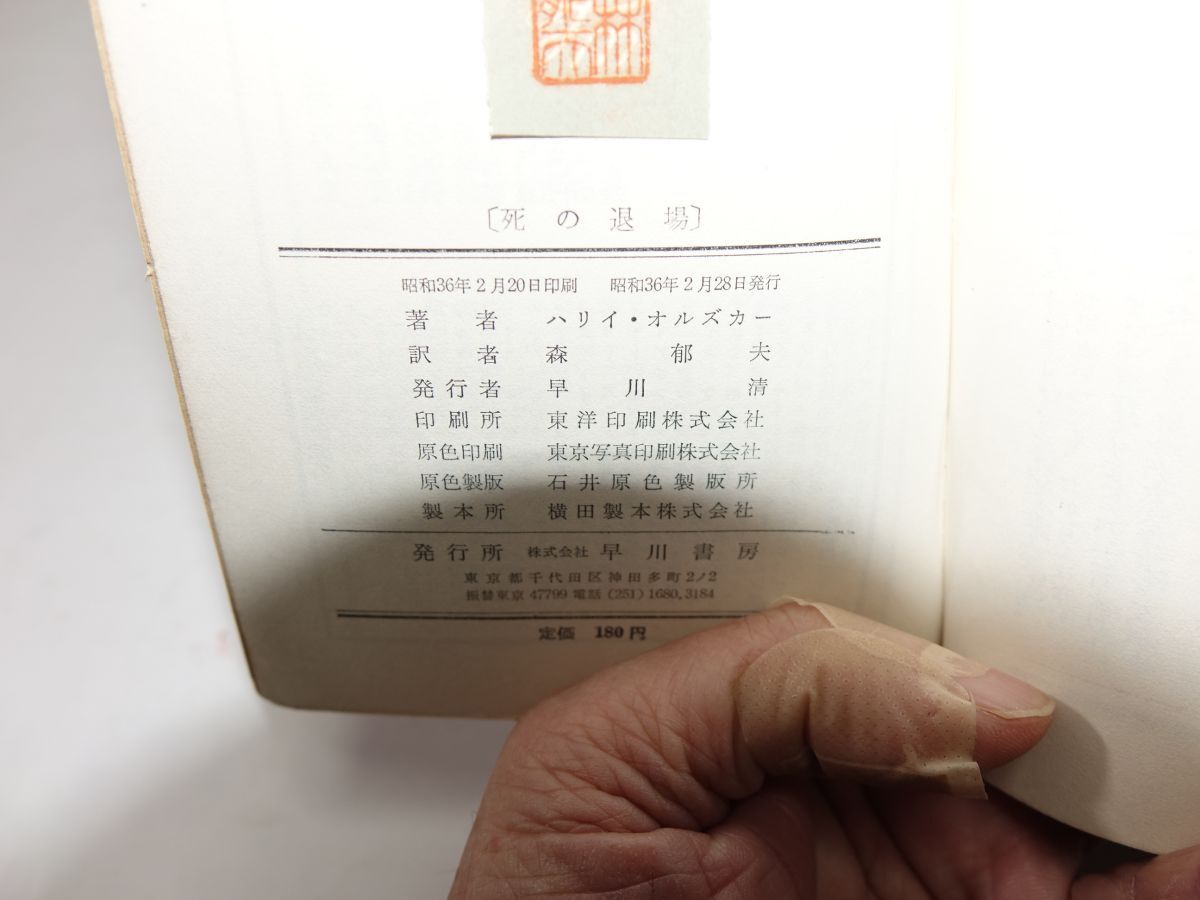 〔死の退場〕
昭和36年2月20日印刷 昭和36年2月28日発行
著者 ハリイ・オルズカー
訳者 森郁夫
発行者 早川清
印刷所 東洋印刷株式会社
原色印刷 東京写真印刷株式会社
原色製版 石井原色製版所
製本所 横田製本株式会社
発行所 株式会社 早川書房
東京都千代田区神田多町2ノ2
振替東京 47799 電話 (251) 1680,3184
定価 180円